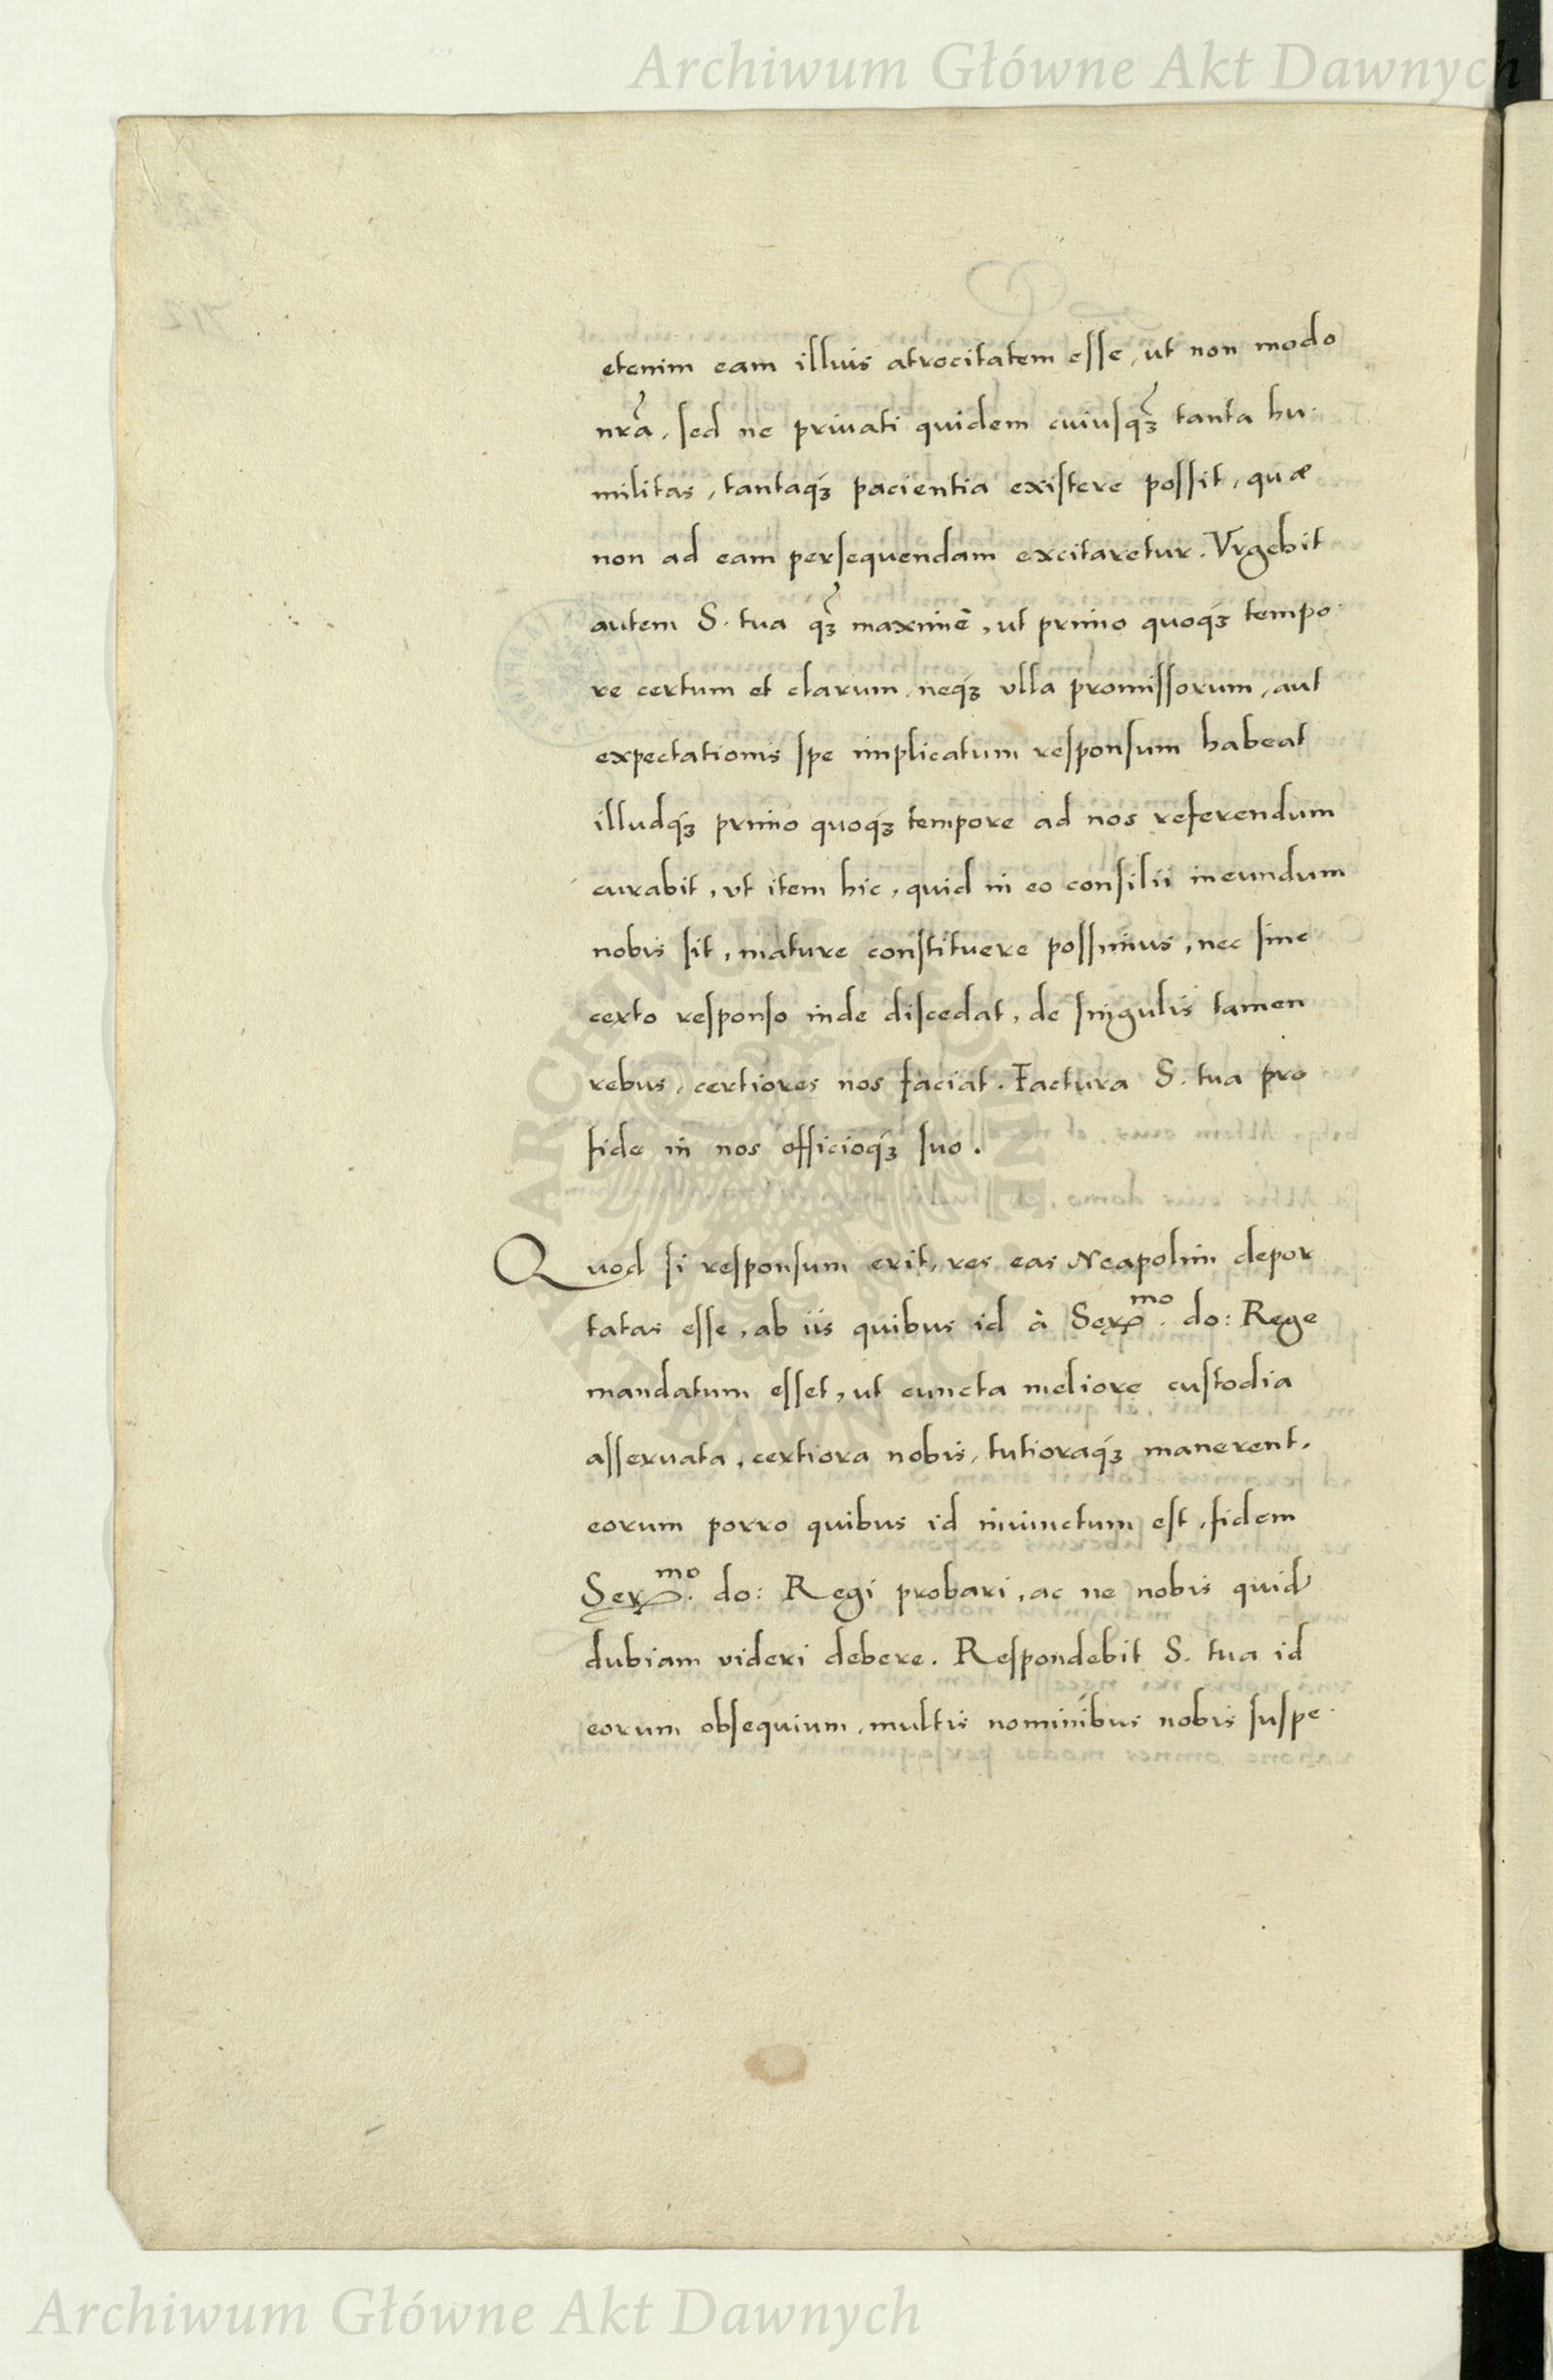 Archiwum Główne Akt Dawnych
etenim eam illius atrocitatem esse, ut non modo
nr̃a, sed ne priuati quidem cuiusq̃ꝫ tanta hu-
militas, tantaq́ꝫ pacientia existere possit, quæ
non ad eam persequendam excitaretur. Vrgebit
autem S. tua q̃ꝫ maximè, ut primo quoq́ꝫ tempo-
re certum et clarum, neq́ꝫ vlla promissorum, aut
expectationis spe implicatum responsum habeat
illudq́ꝫ primo quoq́ꝫ tempore ad nos referendum
curabit, vt item hic, quid in eo consilii ineundum
nobis sit, mature constituere possimus, nec sine
certo responso inde discedat, de singulis tamen
rebus, certiores nos faciat. Factura S. tua pro
fide in nos officioq́ꝫ suo.
Quod si responsum erit, res eas Neapolim depor
tatas esse, ab iis quibus id à Ser.mo do: Rege
mandatum esset, ut cuncta meliore custodia
asseruata, certiora nobis, tutioraq́ꝫ manerent.
eorum porro quibus id iniunctum est, fidem
Ser.mo do: Regi probari, ac ne nobis quid
dubiam videri debere. Respondebit S. tua id
eorum obsequium, multis nominibus nobis suspe-
ARCHIWUM GŁÓWNE AKT DAWNYCH
Archiwum Główne Akt Dawnych